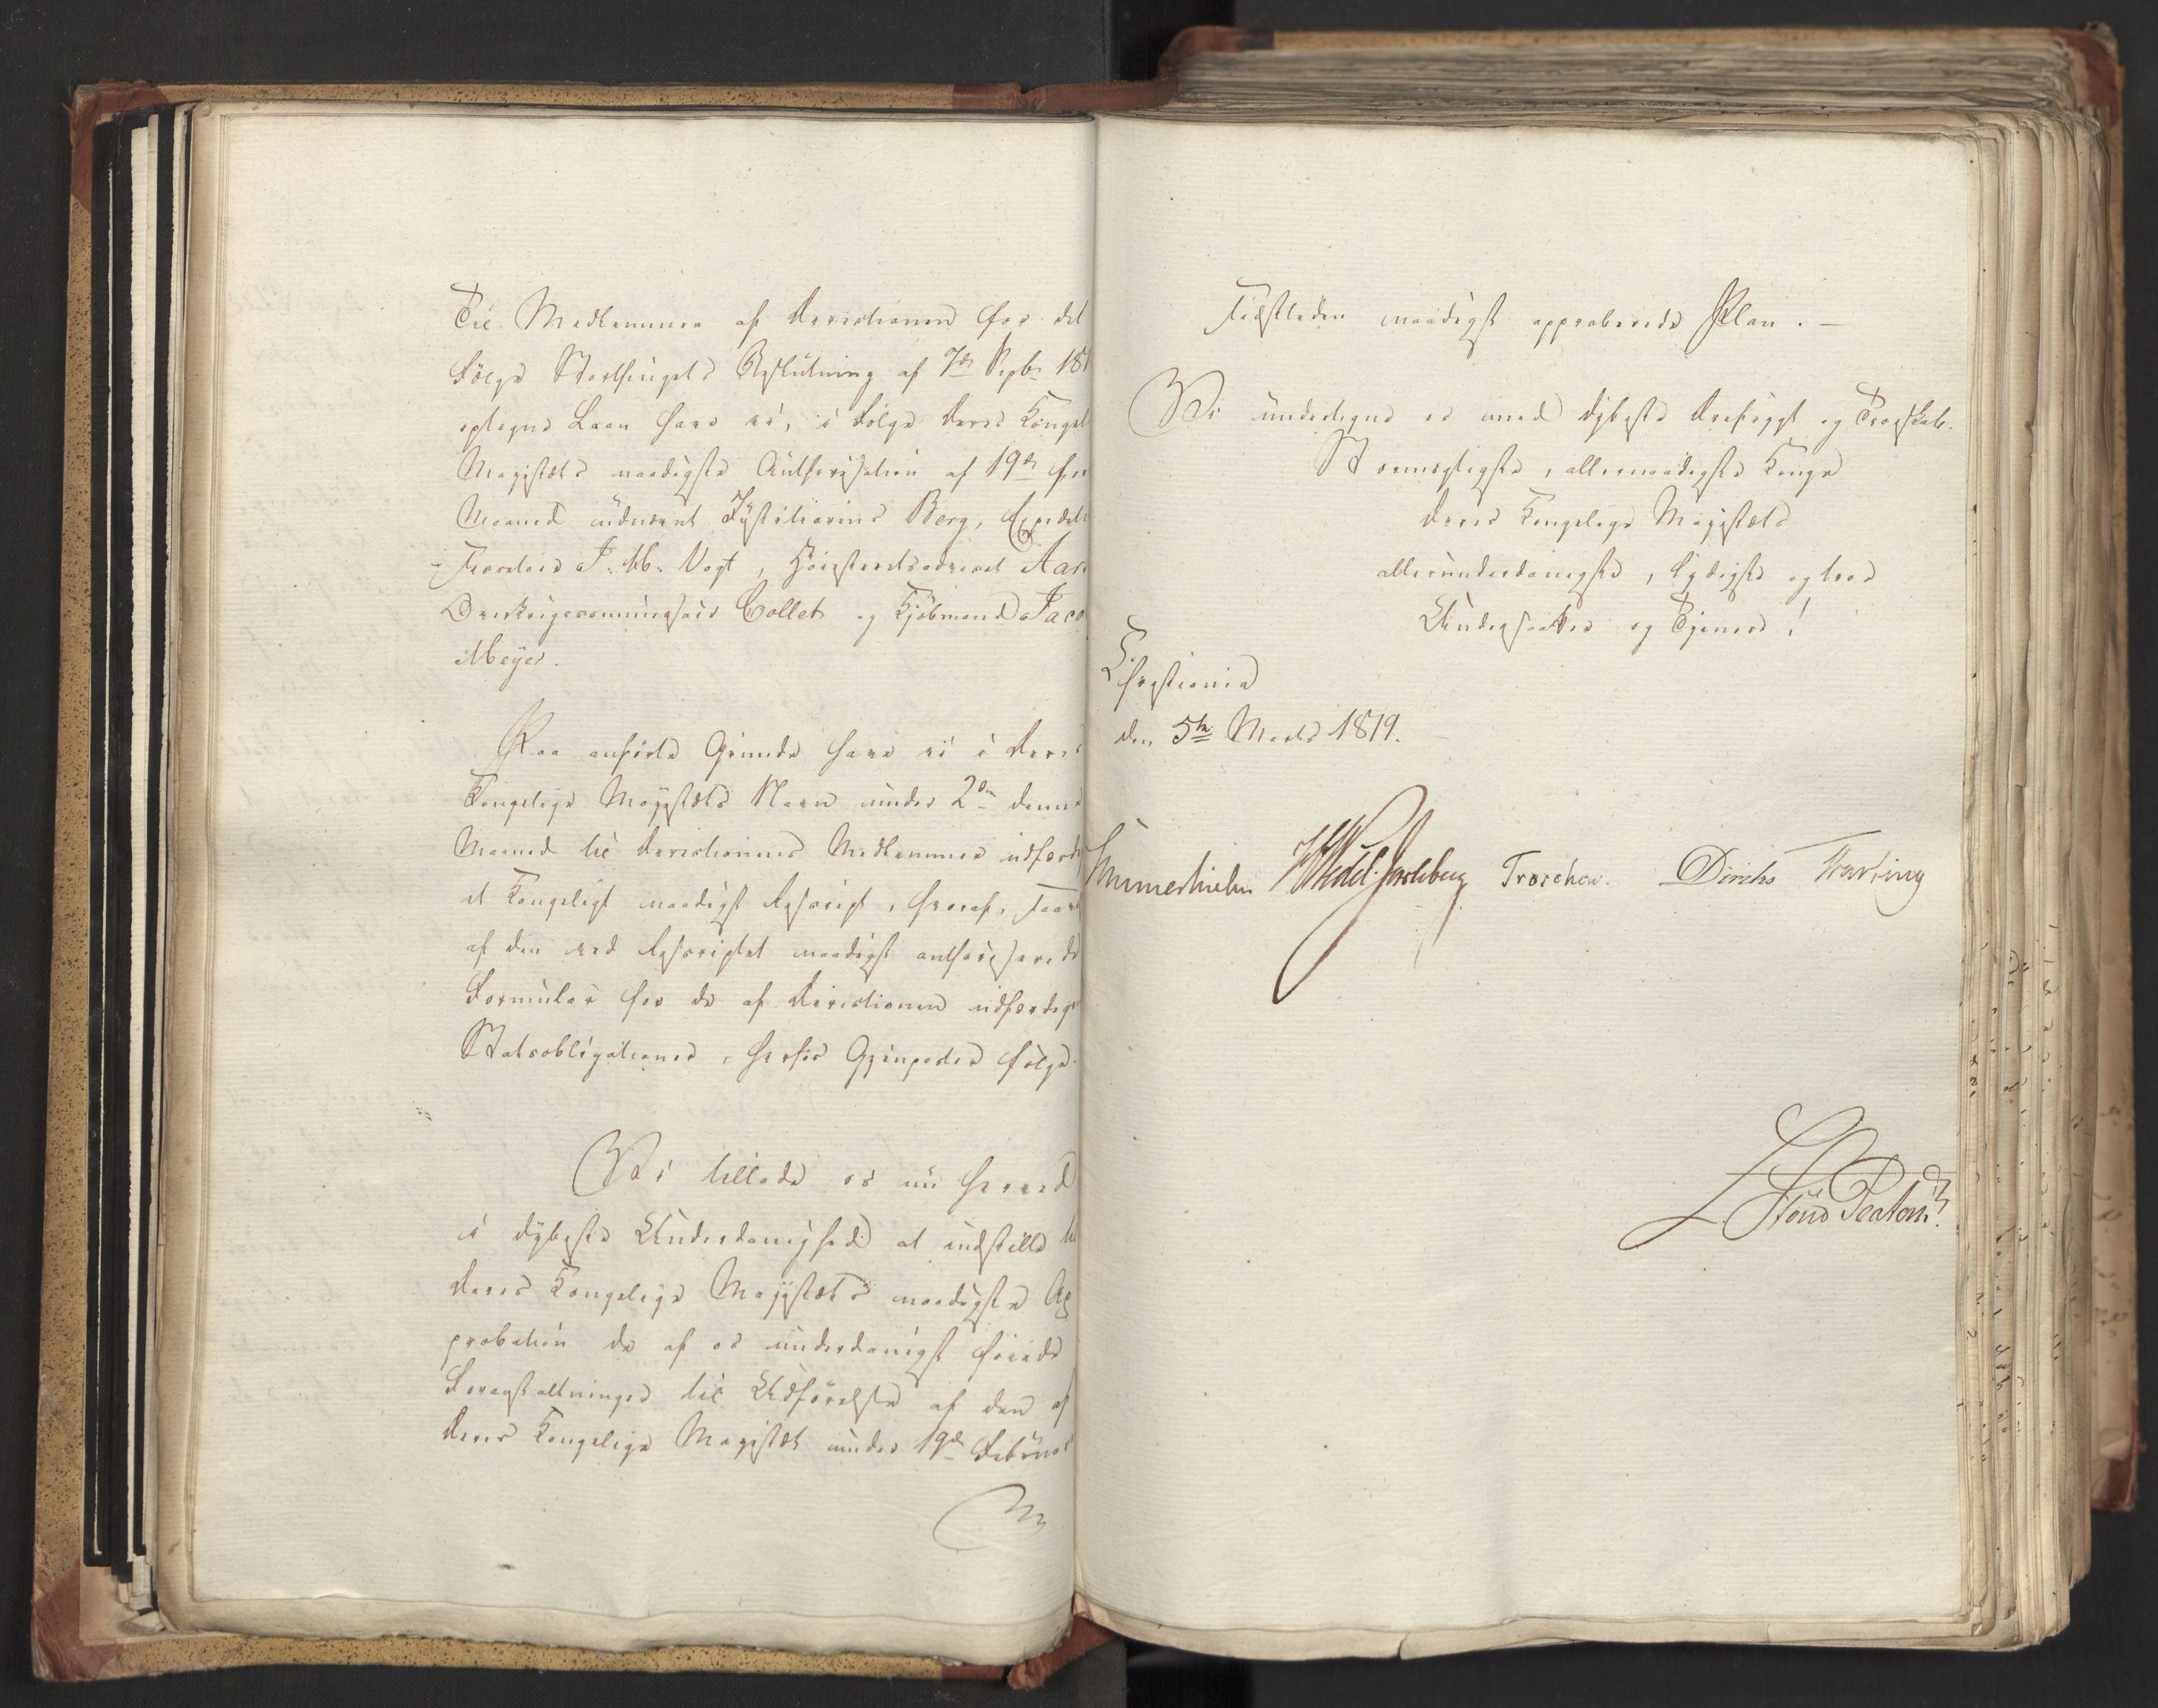 Til Medlemmer af Directionen for det
Følge Storthingets Beslutning af 7de Septbr 181
optagne Laan have vi, i Følge Deres Kongel
Majestæts naadigste Authorisation af 19de
Maaned udnævnt Justitiarius Berg, Expedit
J. H. Vogt, Höiesteretsadvocat
Overkrigscommissair Collet og Kjöbmand Jaco
Meyer.
Paa anförte Grunde have vi i Deres
Kongelige Majestæts Navn under 2den denne
Maaned til Directionens Medlemmer udfærd
et Kongeligt naadigst Rescript, hvoraf,
af den ved Rescriptet naadigst authoriserede
Formular for de af Directionen udfærdige
Statsobligationer, herhos Gjenparter følge.
Vi tillade os nu herved
i dybeste Underdanighed at indstille til
Deres Kongelige Majestæts naadigste Ap
probation de af os underdanigst föiede
Foranstaltninger til Udförelse af den af
Deres Kongelige Majestæt under 19de Februar
Sidstleden naadigst approberede Plan. —
Vi undertegne os med dybeste Ærefrygt og Troeskab.
Stormægtigste, allernaadigste Konge
Deres Kongelige Majestæts
allerunderdanigste, lydigste og troe
Undersaatter og Tjenere!
Christiania
den 5te Marts 1819.
Sommerhielm HWedel-Jarlsberg Treschow. Diriks Fasting